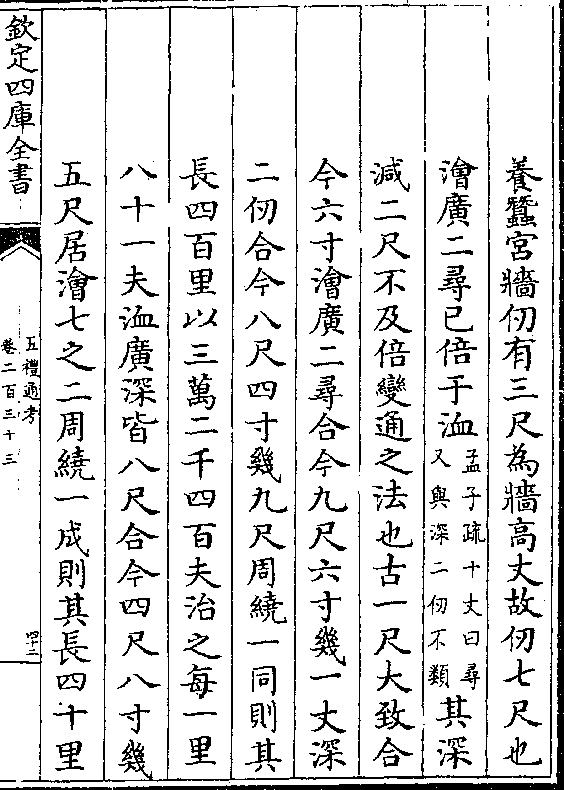 養蠶宮牆仞有三尺為牆高丈故仞七尺也
澮廣二尋已倍于洫孟子疏十丈曰尋又與深二仞不類其深
減二尺不及倍變通之法也古一尺大致合
今六寸澮廣二尋合今九尺六寸幾一丈深
二仞合今八尺四寸幾九尺周繞一同則其
長四百里以三萬二千四百夫治之每一里
八十一夫洫廣深皆八尺合今四尺八寸幾
五尺居澮七之二周繞一成則其長四十里
欽定四庫全書
五禮通考
卷二百三十三
四二